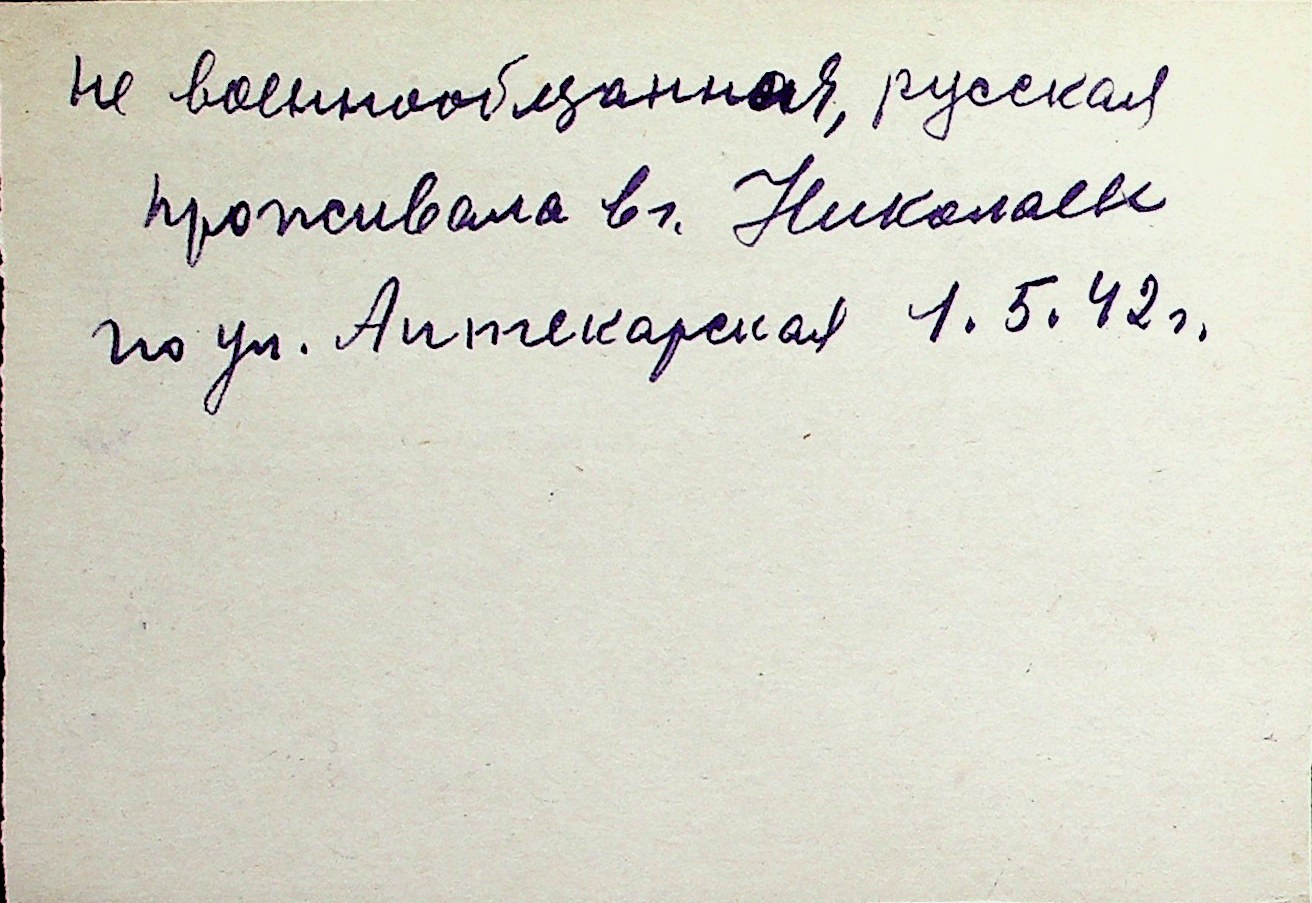 не военнообязанная, русская
проживала в г. Николаев
по ул. Аптекарская 1. 5. 42 г.